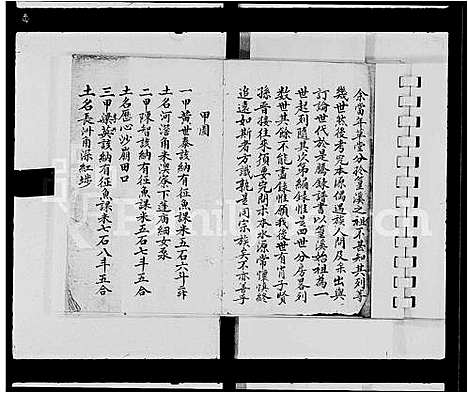 余當年草堂分於篁溪之祖不甚知其列等
幾世然後考究本源偶遇族人問及未出與
訂論世代於是騰錄譜書以篁溪始祖為一
世起列隨其次第編錄惟是四世分房各列
數世其餘不能盡錄惟願我後世有肖子賢
孫晉接往來須要究問宗水源常懷慎終
追遠如斯者方識孰是同宗族矣不亦善乎
甲圖
一甲黃世泰該納有征魚課米五石六斗
土名河滘角米澳原下蓮廟細女
二甲陳智該納有征魚課米五石七斗五合
土名歷心沙崩田口
三甲梁英該納有征魚課米七石八斗五合
土名長洲角深紅埗